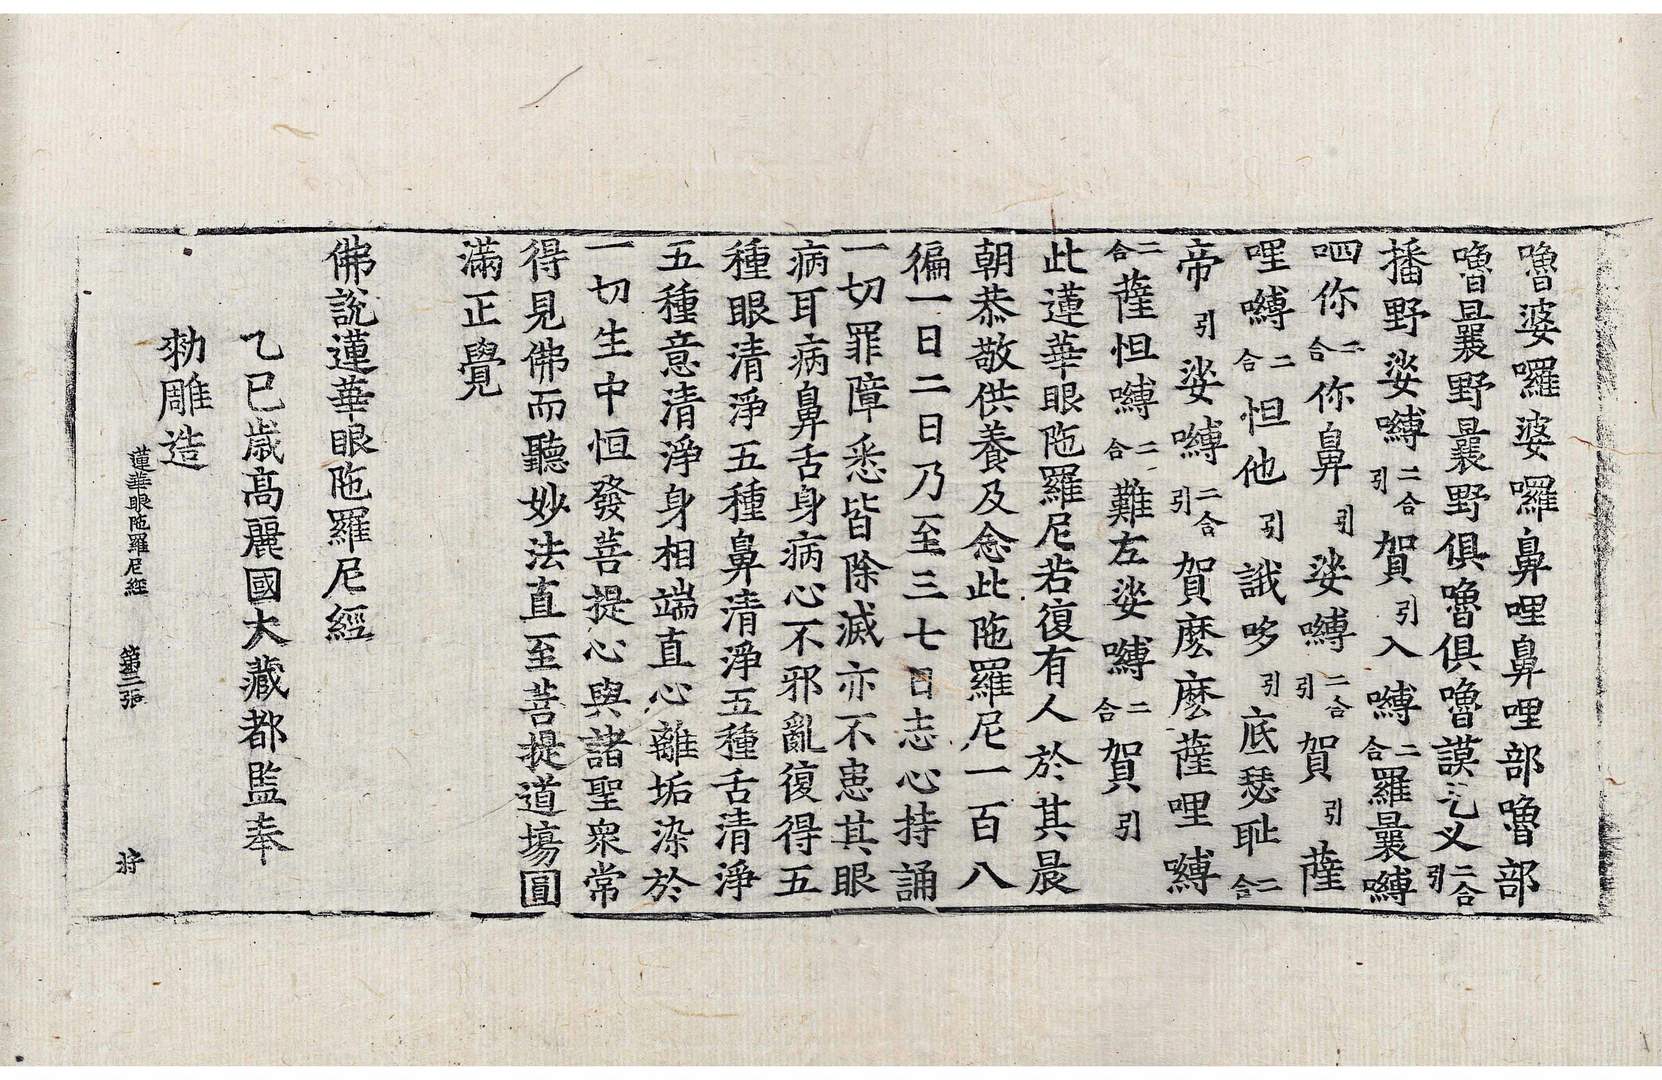 嚕婆囉婆囉鼻哩鼻哩部嚕部
嚕曩野曩野俱嚕俱嚕謨乞叉二合引
播野娑嚩二合引賀引入嚩二合羅曩嚩
呬你二合你鼻引娑嚩二合引賀引薩
哩嚩二合怛他引誐哆引底瑟耻二合
帝引娑嚩二合引賀麽麽薩哩嚩
二合薩怛嚩二合難左娑嚩二合賀引
此蓮華眼陁羅尼若復有人於其晨
朝恭敬供養及念此陁羅尼一百八
徧一日二日乃至三七日志心持誦
一切罪障悉皆除滅亦不患其眼
病耳病鼻舌身病心不邪亂復得五
種眼清淨五種鼻清淨五種舌清淨
五種意清淨身相端直心離垢染於
一切生中恒發菩提心與諸聖衆常
得見佛而聽妙法直至菩提道場圓
滿正覺
佛說蓮華眼陁羅尼經
乙巳歲高麗國大藏都監奉
勅雕造
蓮華眼陁羅尼經 第二張